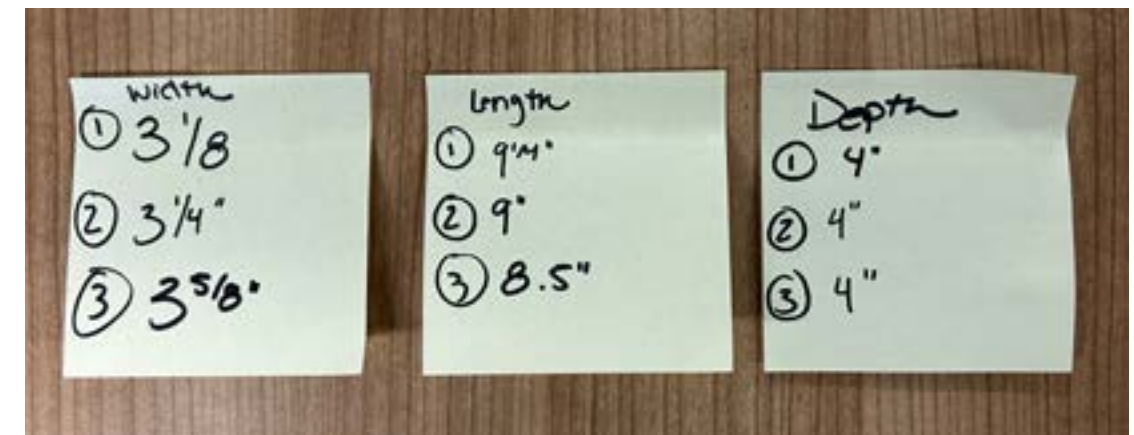 Width
① 3 1/8
② 3 1/4"
③ 3 5/8"
Length
① 9 1/4"
② 9"
③ 8.5"
Depth
① 4"
② 4"
③ 4"